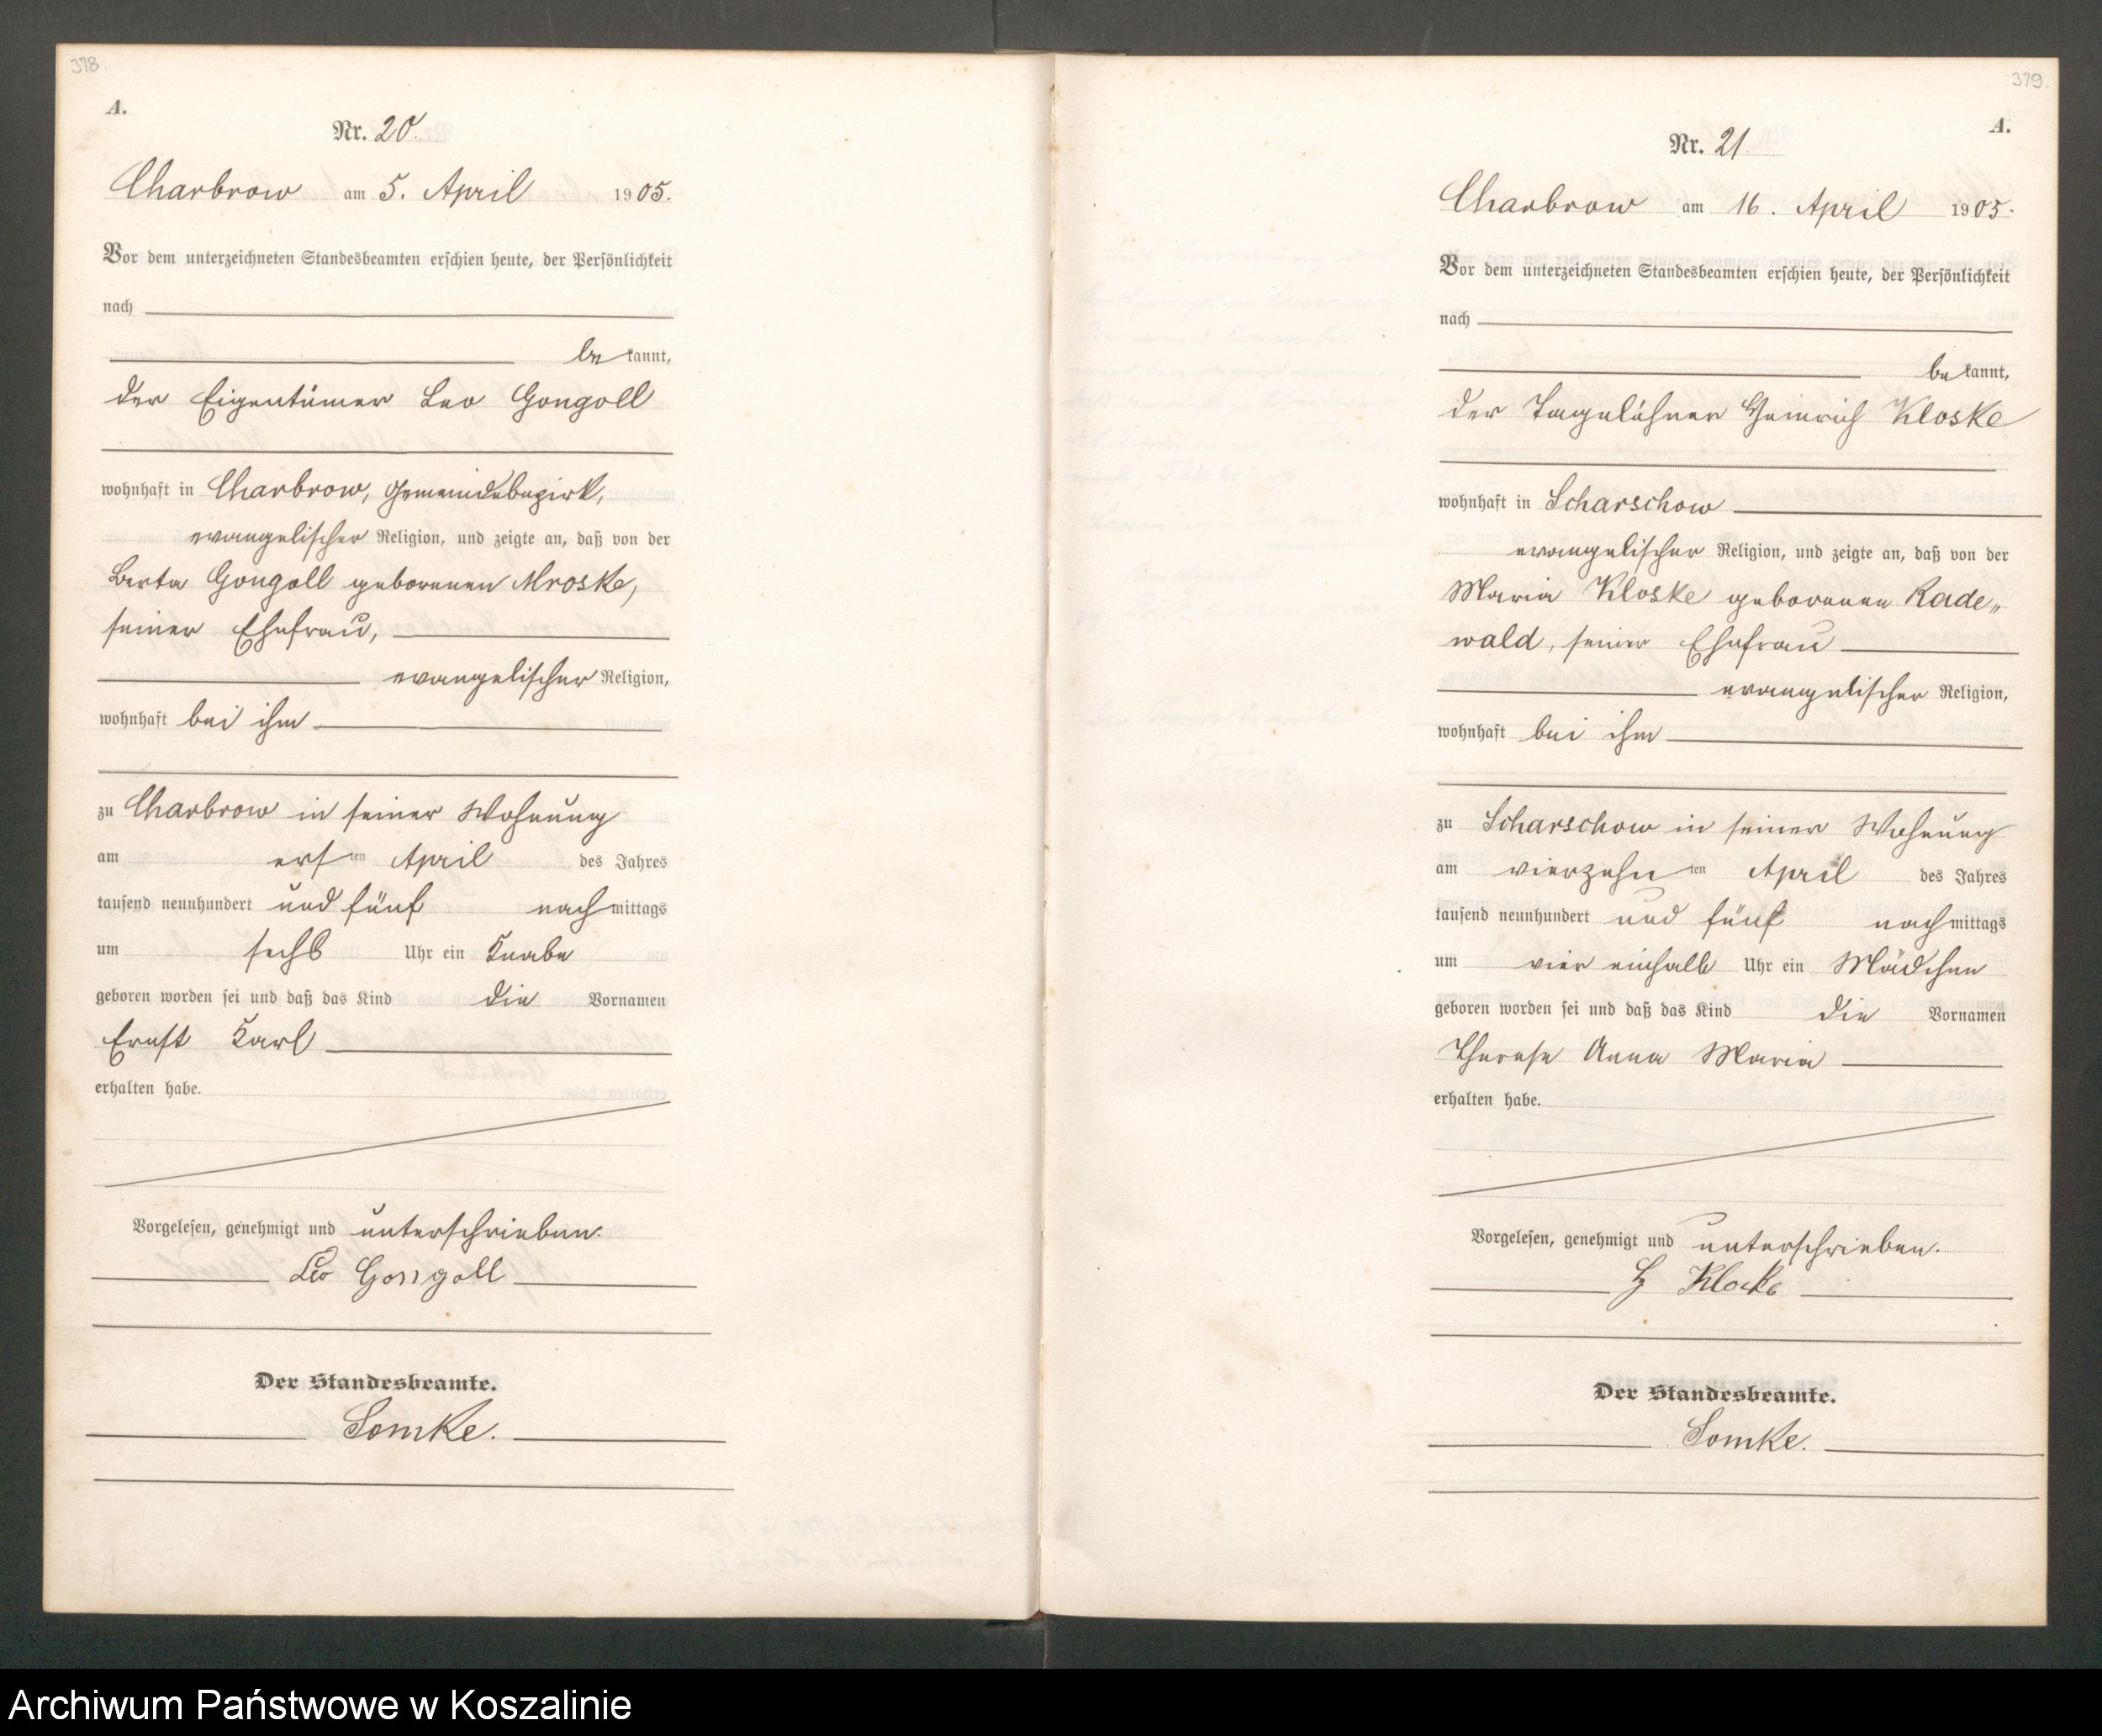 378.
A.
Nr. 20.
Charbrow am 5. April 1905.
Vor dem unterzeichneten Standesbeamten erschien heute, der Persönlichkeit
nach
bekannt,
der Eigentümer Leo Gongoll
wohnhaft in Charbrow, Gemeindebezirk,
evangelischer Religion, und zeigte an, daß von der
Berta Gongoll geborenen Mroske,
seiner Ehefrau,
evangelischer Religion,
wohnhaft bei ihm
zu Charbrow in seiner Wohnung
am ersten April des Jahres
tausend neunhundert und fünf nachmittags
um sechs Uhr ein Knabe
geboren worden sei und daß das Kind die Vornamen
Ernst Karl
erhalten habe.
Vorgelesen, genehmigt und unterschrieben.
Leo Gongoll
Der Standesbeamte.
Somke.
379.
A.
Nr. 21.
Charbrow am 16. April 1905.
Vor dem unterzeichneten Standesbeamten erschien heute, der Persönlichkeit
nach
bekannt,
der Tagelöhner Heinrich Kloske
wohnhaft in Scharschow
evangelischer Religion, und zeigte an, daß von der
Maria Kloske geborenen Rade„
wald, seiner Ehefrau
evangelischer Religion,
wohnhaft bei ihm
zu Scharschow in seiner Wohnung
am vierzehnten April des Jahres
tausend neunhundert und fünf nachmittags
um vier einhalb Uhr ein Mädchen
geboren worden sei und daß das Kind die Vornamen
Therese Anna Maria
erhalten habe.
Vorgelesen, genehmigt und unterschrieben.
H Kloske
Der Standesbeamte.
Somke.
Archiwum Państwowe w Koszalinie